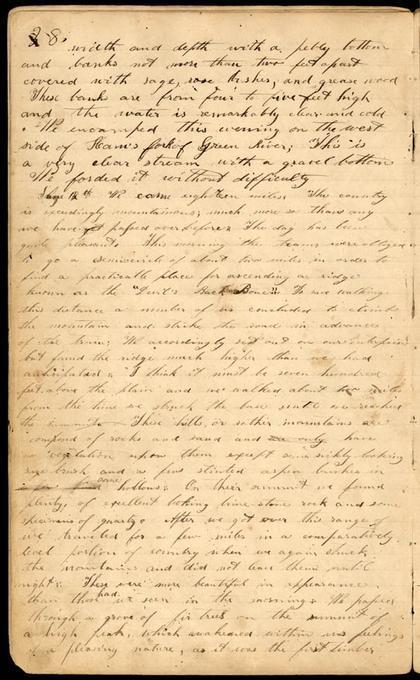 28.
width and depth with a pebly bottom
and banks not more than two feet apart
covered with sage, rose bushes, and grease wood
These banks are from four to five feet high
and the water is remarkably clear and cold
We encamped this evening on the west
side of Ham's fork of Green River; This is
a very clear stream with a gravel bottom
We forded it without difficulty
We came eighteen miles. The country
is excedingly mountainous; much more so than any
we have yet passed over before. The day has been
quite pleasant. This morning the teams were obliged
to go a semicircle of about two miles in order to
find a practicable place for ascending a ridge
known as the "Devil's Back Bone". To save walking
this distance a number of us concluded to climb
the mountain and strike the road in advance
of the train; We accordingly set out on our enterprise
but found the ridge much higher than we had
anticipated. I think it must be seven hundred
feet above the plain and we walked about two miles
from the time we struck the base until we reached
the summit. These hills, or rather mountains are
compond of rocks and sand and have
no vegitation upon them except some sickly looking
brush and a few stinted aspen bushes in
some hollows. On their summit we found
plenty of excellent looking lime stone rock and some
specimens of quartz. After we got over this range of
we traveled for a few miles in a comparatively
level portion of country when we again struck
the mountains and did not leave them until
night. These were more beautiful in appearance
than those we had seen in the morning. We passed
through a grove of fir trees on the summit of
a high peak, which awakened within us feelings
of a pleasing nature, as it was the first timber